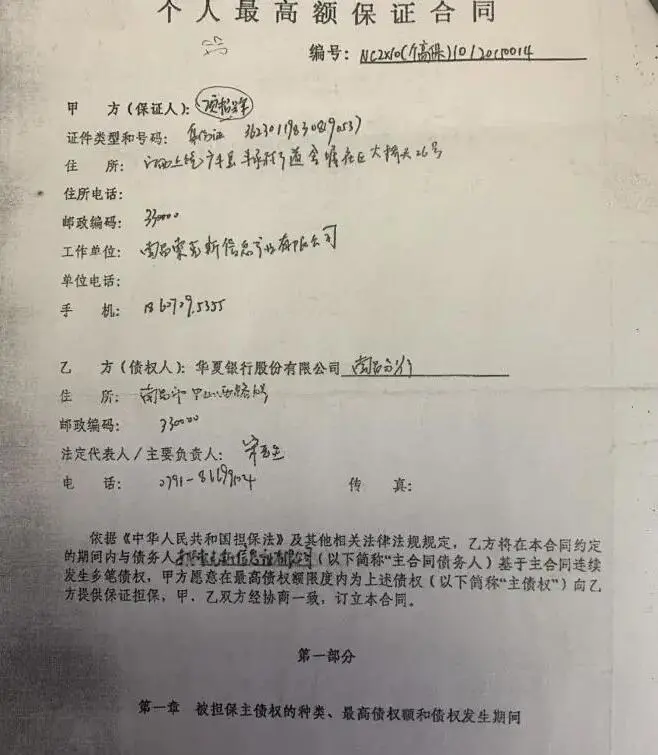 个人最高额保证合同
编号: NC2X10(个高保)10120150014
甲 方(保证人):
证件类型和号码: 身份证 362301198308190537
住 所: 江西上饶广丰县丰溪街道 大桥头26号
住所电话:
邮政编码: 330000
工作单位: 南昌 新信息产业有限公司
单位电话:
手 机:
乙 方(债权人): 华夏银行股份有限公司 南昌分行
住 所: 南昌市中山西路
邮政编码: 330000
法定代表人/主要负责人: 宋
电 话: 0791- 传 真:
依据《中华人民共和国担保法》及其他相关法律法规规定,乙方将在本合同约定
的期间内与债务人 新信息 有限公司(以下简称“主合同债务人)基于主合同连续
发生多笔债权,甲方愿意在最高债权额限度内为上述债权(以下简称“主债权”)向乙
方提供保证担保,甲、乙双方经协商一致,订立本合同。
第一部分
第一章 被担保主债权的种类、最高债权额和债权发生期间